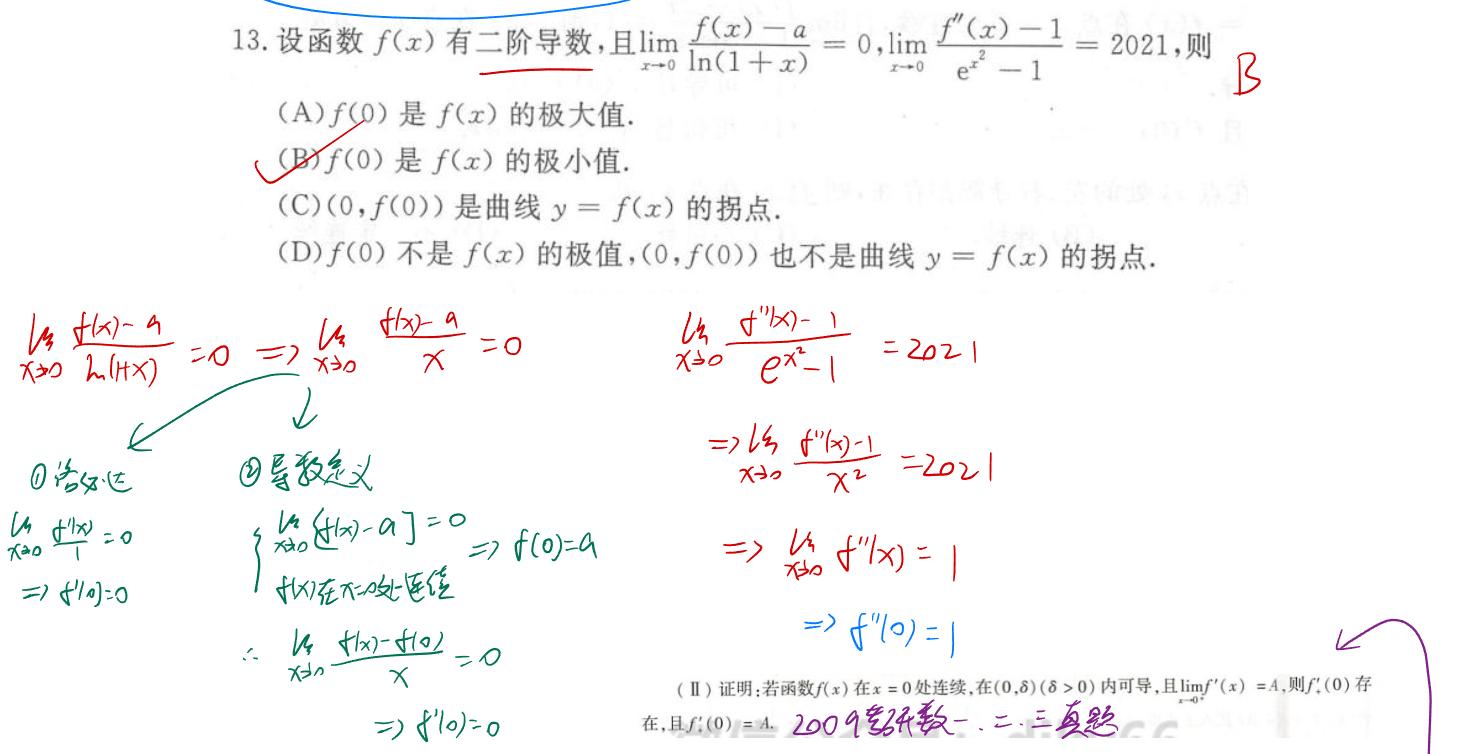 13. 设函数 f(x) 有二阶导数,且 lim_{x→0} (f(x)-a)/(ln(1+x)) = 0, lim_{x→0} (f″(x)-1)/(e^{x²}-1) = 2021,则
B
(A) f(0) 是 f(x) 的极大值.
(B) f(0) 是 f(x) 的极小值.
(C) (0, f(0)) 是曲线 y = f(x) 的拐点.
(D) f(0) 不是 f(x) 的极值, (0, f(0)) 也不是曲线 y = f(x) 的拐点.
lim_{x→0} (f(x)-a)/(ln(1+x)) = 0 ⇒ lim_{x→0} (f(x)-a)/x = 0
① 洛必达
lim_{x→0} f'(x)/1 = 0
⇒ f'(0)=0
② 导数定义
lim_{x→0} [f(x)-a] = 0
f(x)在x=0处连续
⇒ f(0)=a
∴ lim_{x→0} (f(x)-f(0))/x = 0
⇒ f'(0)=0
lim_{x→0} (f″(x)-1)/(e^{x²}-1) = 2021
⇒ lim_{x→0} (f″(x)-1)/x² = 2021
⇒ lim_{x→0} f″(x) = 1
⇒ f″(0) = 1
(Ⅱ) 证明:若函数f(x)在x=0处连续,在(0,δ)(δ>0)内可导,且lim_{x→0⁺} f′(x) =A,则f′₊(0)存
在,且f′₊(0) = A. 2009考研数一、二、三真题